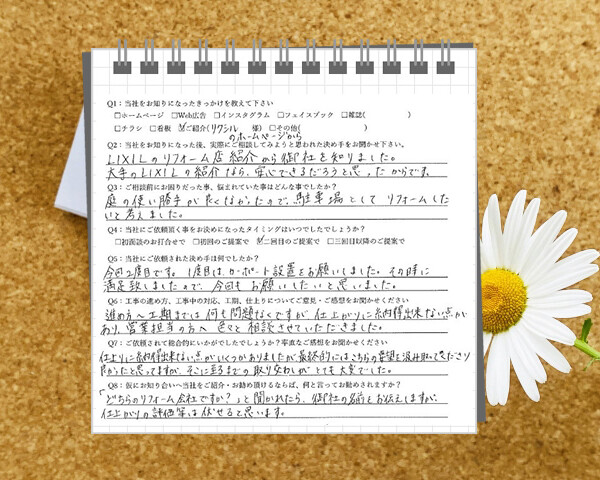 Q1：当社をお知りになったきっかけを教えて下さい
□ホームページ □Web広告 □インスタグラム □フェイスブック □雑誌(　　　)
□チラシ □看板 ☑ご紹介(リクシル 様) □その他(　　　)
のホームページから
Q2：当社をお知りになった後、実際にご相談してみようと思われた決め手をお聞かせ下さい。
LIXILのリフォーム店紹介から御社を知りました。
大手のLIXILの紹介なら、安心できるだろうと思ったからです。
Q3：ご相談前にお困りだった事、悩まれていた事はどんな事でしたか？
庭の使い勝手が良くなかったので、駐車場として リフォームした
いと考えました。
Q4：当社にご依頼頂く事をお決めになったタイミングはいつでしたでしょうか？
□初面談のお打合せで □初回のご提案で ☑二回目のご提案で □三回目以降のご提案で
Q5：当社にご依頼された決め手は何でしたか？
今回2度目です。1度目は、カーポート設置をお願いしました。その時に
満足致しましたので、今回も お願いしたいと思いました。
Q6：工事の進め方、工事中の対応、工期、仕上りについてご意見・ご感想をお聞かせください
進め方へ工期までは 何も問題なくですが、仕上がりに 納得出来ない点が
あり、営業担当の方へ 色々と 相談させていただきました。
Q7：ご依頼されて総合的にいかがでしたでしょうか？率直なご感想をお聞かせください
仕上りに納得出来ない点が いくつかありましたが、最終的にはこちらの要望を汲み取って下さり
良かったと思ってますが、そこに至るまでの 取り交わしが とても 大変でした。
Q8：仮にお知り合いへ当社をご紹介・お勧め頂けるならば、何と言ってお勧めされますか？
「どちらのリフォーム会社ですか？」と聞かれたら、御社の名前をお伝えしますが、
仕上がりの評価等は 伏せると思います。